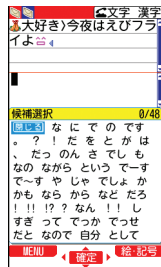 全文字 漢字
大好き♪今夜はえびフラ
イよ
候補選択 0/48
閉じる な に で の です
。 ? ! だ を と が は
、 だっ のん さ でし も
なの ながら という でーす
で〜す や じゃ でしょ か
かも なら から など だろ
! !! !? ? なん !! し
すぎ って でっか でっせ
だと なので 自分 として
MENU 確定 絵・記号